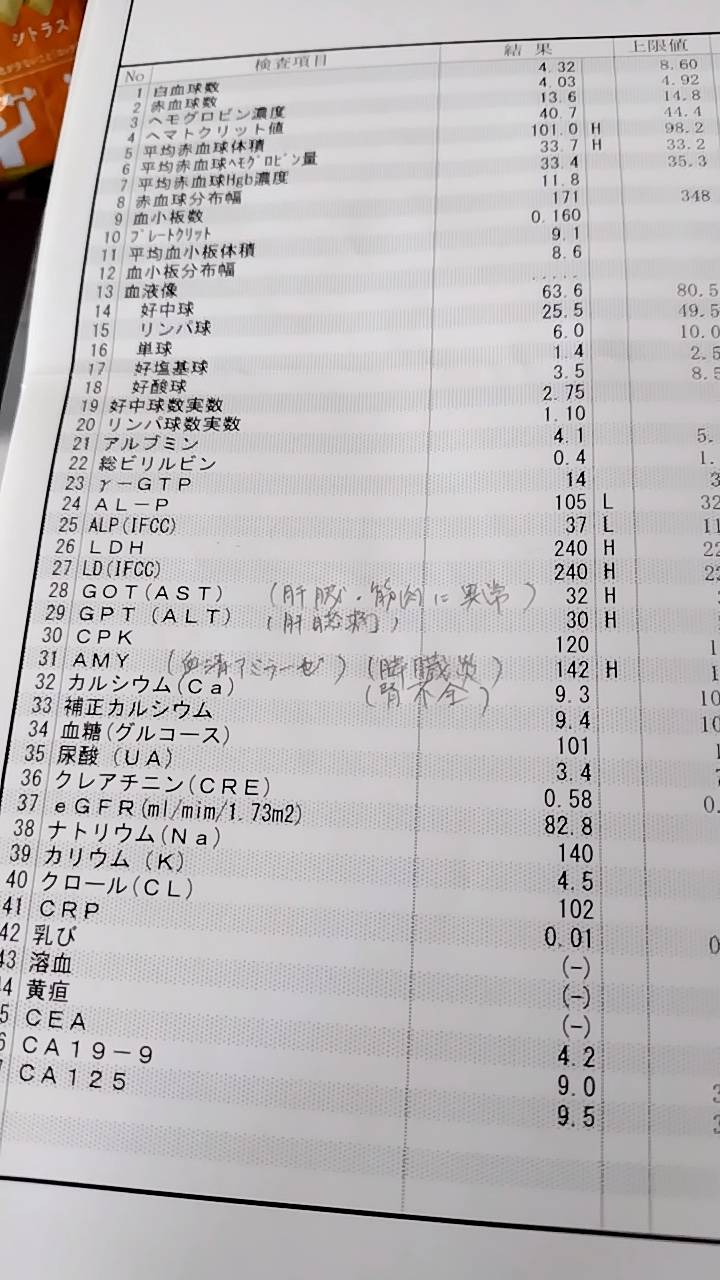 シトラス
No 検査項目 結果 上限値
1 白血球数 4.32 8.60
2 赤血球数 4.03 4.92
3 ヘモグロビン濃度 13.6 14.8
4 ヘマトクリット値 40.7 44.4
5 平均赤血球体積 101.0 H 98.2
6 平均赤血球ヘモグロビン量 33.7 H 33.2
7 平均赤血球Hgb濃度 33.4 35.3
8 赤血球分布幅 11.8
9 血小板数 171 348
10 プレートクリット 0.160
11 平均血小板体積 9.1
12 血小板分布幅 8.6
13 血液像 .....
14 好中球 63.6 80.5
15 リンパ球 25.5 49.5
16 単球 6.0 10.0
17 好塩基球 1.4 2.5
18 好酸球 3.5 8.5
19 好中球数実数 2.75
20 リンパ球数実数 1.10
21 アルブミン 4.1 5.
22 総ビリルビン 0.4 1.
23 γ-GTP 14 3
24 AL-P 105 L 32
25 ALP(IFCC) 37 L 11
26 LDH 240 H 22
27 LD(IFCC) 240 H 22
28 GOT(AST) (肝臓・筋肉に異常) 32 H
29 GPT(ALT) (肝臓病) 30 H
30 CPK 120 1
31 AMY (血清アミラーゼ) (膵臓炎) 142 H 1
(腎不全)
32 カルシウム(Ca) 9.3 10
33 補正カルシウム 9.4 10
34 血糖(グルコース) 101 1
35 尿酸(UA) 3.4 7
36 クレアチニン(CRE) 0.58 0.
37 eGFR(ml/mim/1.73m2) 82.8
38 ナトリウム(Na) 140
39 カリウム(K) 4.5
40 クロール(CL) 102
41 CRP 0.01 0
42 乳び (-)
43 溶血 (-)
4 黄疸 (-)
5 CEA 4.2
6 CA19-9 9.0 3
7 CA125 9.5 3